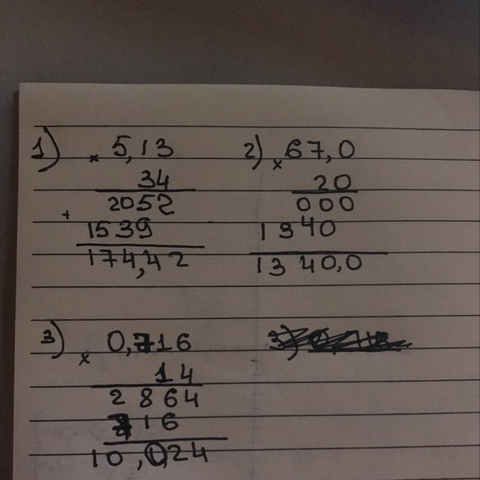 1) × 5,13
34
2052
+ 1539
174,42
2) × 67,0
20
000
1340
1340,0
3) × 0,716
14
2864
716
10,024